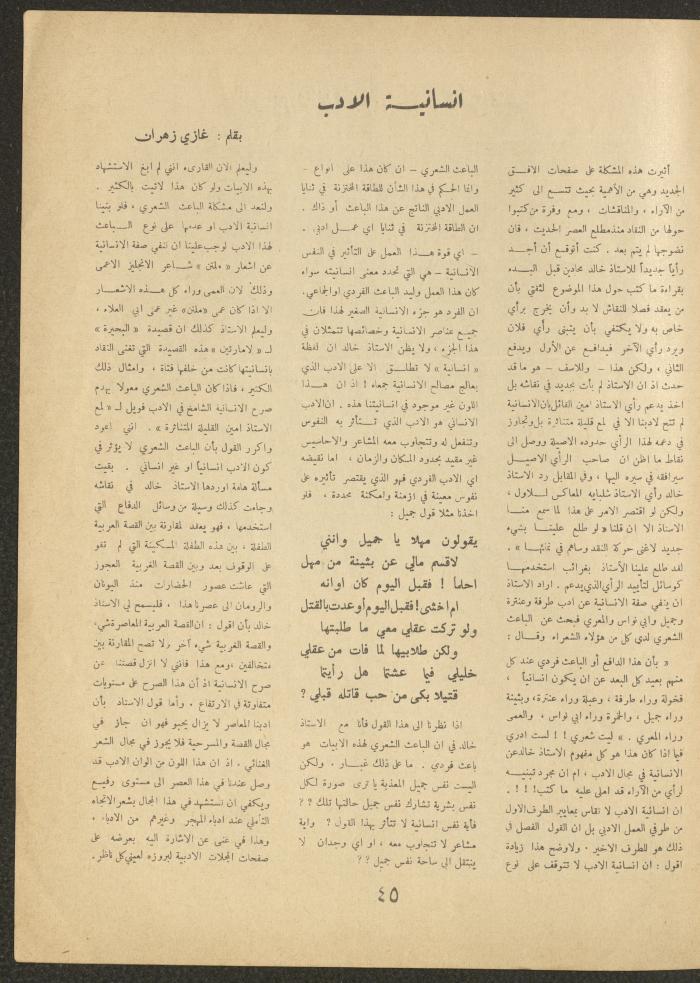 انسانية الادب
بقلم : غازي زهران
أثيرت هذه المشكلة على صفحات الافق
الجديد وهي من الأهمية بحيث تتسع الى كثير
من الآراء ، والمناقشات ، ومع وفرة من كتبوا
حولها من النقاد منذ مطلع العصر الحديث ، فان
نضوجها لم يتم بعد . كنت أتوقع أن أجد
رأياً جديداً للاستاذ خالد محادين قبل البدء
بقراءة ما كتب حول هذا الموضوع لثقتي بأن
من يعقد فصلا للنقاش لا بد وأن يخرج برأي
خاص به ولا يكتفي بأن يتبنى رأي فلان
ويرد رأي الآخر فيدافع عن الأول ويدفع
الثاني ، ولكن هذا – وللاسف – هو ما قد
حدث اذ ان الاستاذ لم يأت بجديد في نقاشه بل
اخذ يدعم رأي الاستاذ امين القائل بان الانسانية
لم تتح لادبنا الا في لمع قليلة متناثرة بل وتجاوز
في دعمه لهذا الرأي حدوده الاصيلة ووصل الى
نقاط ما اظن ان صاحب الرأي الاصيل
سيرافقه في سيره اليها ، وفي المقابل رد الاستاذ
خالد رأي الاستاذ شلبايه المعاكس للاول ،
ولكن لو اقتصر الامر على هذا لما سمع منا
الاستاذ الا ان قلنا « لو طلع علينا بشيء
جديد لاغنى حركة النقد وساهم في نمائها » .
لقد طلع علينا الأستاذ بغرائب استخدمها
كوسائل لتأييد الرأي الذي يدعم . اراد الاستاذ
ان ينفي صفة الانسانية عن ادب طرفة وعنترة
وجميل وابي نواس والمعري فبحث عن الباعث
الشعري لدى كل من هؤلاء الشعراء وقال :
« بأن هذا الدافع أو الباعث فردي عند كل
منهم بعيد كل البعد عن ان يكون انسانياً ،
فخولة وراء طرفة ، وعبلة وراء عنترة ، وبثينة
وراء جميل ، والخمرة وراء ابي نواس ، والعمى
وراء المعري . » ليت شعري ! ! لست ادري
فيما اذا كان هذا هو كل مفهوم الاستاذ خالد عن
الانسانية في مجال الادب ، ام ان مجرد تبنيه
لرأي من الآراء قد املى عليه ما كتب ! ! ! .
ان انسانية الادب لا تقاس بمعايير الطرف الاول
من طرفي العمل الادبي بل ان القول الفصل في
ذلك هو للطرف الاخير . ولاوضح هذا زيادة
اقول : ان انسانية الادب لا تتوقف على نوع
الباعث الشعري – ان كان هذا على انواع –
وانما الحكم في هذا الشأن للطاقة المختزنة في ثنايا
العمل الادبي الناتج عن هذا الباعث أو ذاك .
ان الطاقة المختزنة في ثنايا اي عمل ادبي .
– اي قوة هذا العمل على التأثير في النفس
الانسانية – هي التي تحدد معنى انسانيته سواء
كان هذا العمل وليد الباعث الفردي اوالجماعي.
ان الفرد هو جزء الانسانية الصغير لهذا فان
جميع عناصر الانسانية وخصائصها تتمثلان في
هذا الجزء ، ولا يظن الاستاذ خالد ان لفظة
« انسانية » لا تطلق الا على الادب الذي
يعالج مصالح الانسانية جمعاء ! اذ ان هذا
اللون غير موجود في انسانيتنا هذه . ان الادب
الانساني هو الادب الذي تتأثر به النفوس
وتنفعل له وتتجاوب معه المشاعر والاحاسيس
غير مقيد بحدود المكان والزمان ، اما نقيضه
اي الادب الفردي فهو الذي يقتصر تأثيره على
نفوس معينة في ازمنة وامكنة محددة ، فلو
اخذنا مثلا قول جميل :
يقولون مهلا يا جميل وانني
لاقسم مالي عن بثينة من مهل
احلما ! فقبل اليوم كان اوانه
ام اخشى ! فقبل اليوم أوعدت بالقتل
ولو تركت عقلي معي ما طلبتها
ولكن طلابيها لما فات من عقلي
خليلي فيما عشتما هل رأيتما
قتيلا بكى من حب قاتله قبلي ؟
اذا نظرنا الى هذا القول فأنا مع الاستاذ
خالد في ان الباعث الشعري لهذه الابيات هو
باعث فردي . ما على ذلك غبار . ولكن
اليست نفس جميل المعذبة يا ترى صورة لكل
نفس بشرية تشارك نفس جميل حالتها تلك ? ?
فأية نفس انسانية لا تتأثر بهذا القول ? واية
مشاعر لا تتجاوب معه ، او اي وجدان لا
ينتقل الى ساحة نفس جميل ? ?
وليعلم الان القارىء انني لم ابغ الاستشهاد
بهذه الابيات ولو كان هذا لاتيت بالكثير .
ولنعد الى مشكلة الباعث الشعري ، فلو بنينا
انسانية الادب او عدمها على نوع الباعث
لهذا الادب لوجب علينا ان ننفي صفة الانسانية
عن اشعار « ملتن » شاعر الانجليز الاعمى
وذلك لان العمى وراء كل هذه الاشعار
الا اذا كان عمى «ملتن» غير عمى ابي العلاء ،
وليعلم الاستاذ كذلك ان قصيدة « البحيرة »
لـ « لامارتين » هذه القصيدة التي تغنى النقاد
بانسانيتها كانت من خلفها فتاة ، وامثال ذلك
الكثير ، فاذا كان الباعث الشعري معولا يهدم
صرح الانسانية الشامخ في الادب فويل لـ « لمع
الاستاذ امين القليلة المتناثرة » . انني اعود
واكرر القول بأن الباعث الشعري لا يؤثر في
كون الادب انسانياً او غير انساني . بقيت
مسألة هامة اوردها الاستاذ خالد في نقاشه
وجاءت كذلك وسيلة من وسائل الدفاع التي
استخدمها ، فهو يعقد مقارنة بين القصة العربية
الطفلة ، بين هذه الطفلة المسكينة التي لم تقو
على الوقوف بعد وبين القصة الغربية العجوز
التي عاشت عصور الحضارات منذ اليونان
والرومان الى عصرنا هذا . فليسمح لي الاستاذ
خالد بأن اقول : ان القصة العربية المعاصرة شيء
والقصة الغربية شيء آخر ولا تصح المقارنة بين
متخالفين ، ومع هذا فانني لا انزل قصتنا عن
صرح الانسانية اذ أن هذا الصرح على مستويات
متفاوتة في الارتفاع . وأما قول الاستاذ بأن
ادبنا المعاصر لا يزال يحبو فهو ان جاز في
مجال القصة والمسرحية فلا يجوز في مجال الشعر
الغنائي . اذ ان هذا اللون من الوان الادب قد
وصل عندنا في هذا العصر الى مستوى رفيع
ويكفي ان نستشهد في هذا المجال بشعر الاتجاه
التأملي عند ادباء المهجر وغيرهم من الادباء .
وهذا في غنى عن الاشارة اليه بعرضه على
صفحات المجلات الادبية لبروزه لعيني كل ناظر.
٤٥